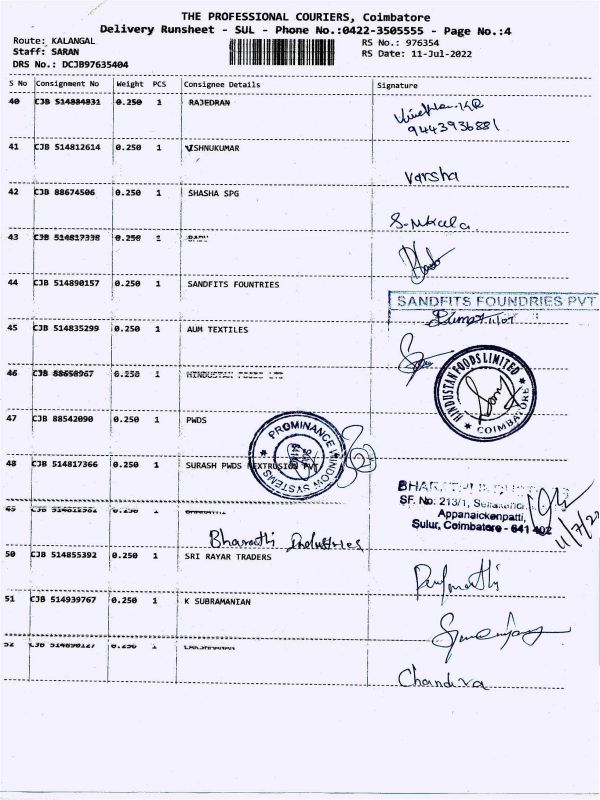 THE PROFESSIONAL COURIERS, Coimbatore
Delivery Runsheet - SUL - Phone No.:0422-3505555 - Page No.:4
Route: KALANGAL
RS No.: 976354
Staff: SARAN
RS Date: 11-Jul-2022
DRS No.: DCJB97635404
S No Consignment No Weight PCS Consignee Details Signature
40 CJB 514884831 0.250 1 RAJEDRAN
9443936881
41 CJB 514812614 0.250 1 VSHNUKUMAR
Varsha
42 CJB 88674506 0.250 1 SHASHA SPG
43 CJB 514817338 0.250 1 BABU
44 CJB 514890157 0.250 1 SANDFITS FOUNTRIES
SANDFITS FOUNDRIES PVT
45 CJB 514835299 0.250 1 AUM TEXTILES
46 CJB 88658967 0.250 1 HINDUSTAN FOODS LTD
HINDUSTAN FOODS LIMITED
COIMBATORE
47 CJB 88542090 0.250 1 PWDS
PROMINANCE WINDOW SYSTEMS
48 CJB 514817366 0.250 1 SURASH PWDS NEXTRUSION PVT
SF. No: 213/1,
Appanaickenpatti,
Sulur, Coimbatore - 641 402
11/7/22
49 0.250 1
Bharathi Industries
50 CJB 514855392 0.250 1 SRI RAYAR TRADERS
51 CJB 514939767 0.250 1 K SUBRAMANIAN
52 0.250 1 LAKSHMANAN
Chandra